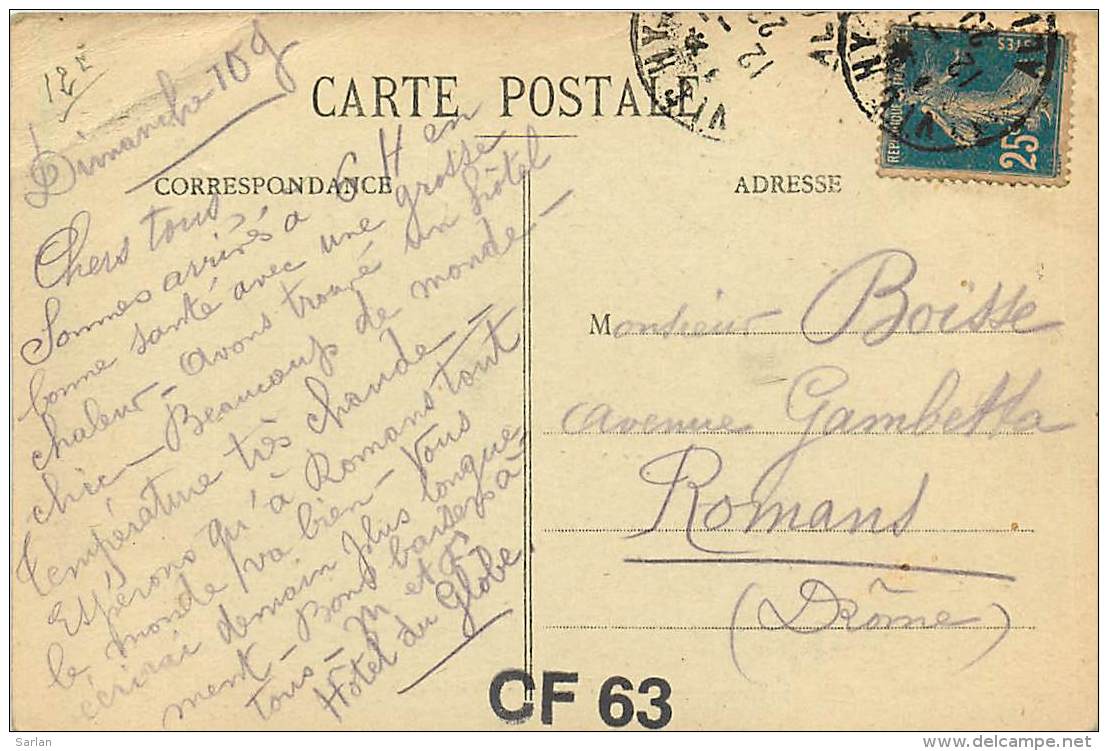 12
CARTE POSTALE
CORRESPONDANCE
ADRESSE
25
Dimanche 10 g
Chers tous
Sommes arrivés à 6 H en
bonne santé avec une grosse
chaleur - avons trouvé un hôtel
chic - Beaucoup de monde -
Température très chaude -
Espérons qu'à Romans tout
le monde va bien - Vous
écrirai demain plus longue
ment - Bons baisers à
tous - M et F
Hôtel du Globe
Monsieur Boisse
avenue Gambetta
Romans
(Drôme)
CF 63
Sarlan
http://www.delcampe.net